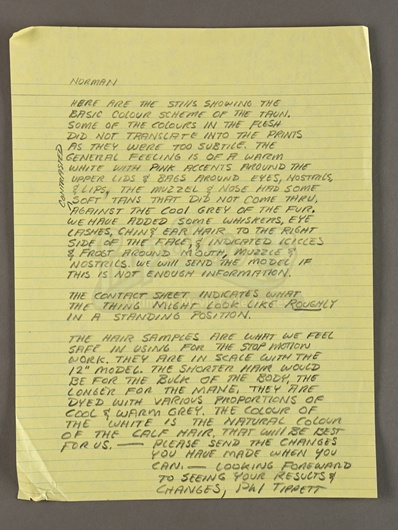 NORMAN
HERE ARE THE STILLS SHOWING THE
BASIC COLOUR SCHEME OF THE TAUN.
SOME OF THE COLOURS IN THE FLESH
DID NOT TRANSLATE INTO THE PRINTS
AS THEY WERE TOO SUBTILE. THE
GENERAL FEELING IS OF A WARM
WHITE WITH PINK ACCENTS AROUND THE
UPPER LIDS & BAGS AROUND EYES, NOSTRILS,
& LIPS, THE MUZZEL & NOSE HAD SOME
SOFT TANS THAT DID NOT COME THRU,
CONTRASTED
AGAINST THE COOL GREY OF THE FUR.
WE HAVE ADDED SOME WHISKERS, EYE
LASHES, CHIN & EAR HAIR TO THE RIGHT
SIDE OF THE FACE, & INDICATED ICICLES
& FROST AROUND MOUTH, MUZZLE &
NOSTRILS. WE WILL SEND THE MODEL IF
THIS IS NOT ENOUGH INFORMATION.
THE CONTACT SHEET INDICATES WHAT
THE THING MIGHT LOOK LIKE ROUGHLY
IN A STANDING POSITION.
THE HAIR SAMPLES ARE WHAT WE FEEL
SAFE IN USING FOR THE STOP MOTION
WORK. THEY ARE IN SCALE WITH THE
12" MODEL. THE SHORTER HAIR WOULD
BE FOR THE BULK OF THE BODY, THE
LONGER FOR THE MANE, THEY ARE
DYED WITH VARIOUS PROPORTIONS OF
COOL & WARM GREY. THE COLOUR OF
THE WHITE IS THE NATURAL COLOUR
OF THE CALF HAIR. THAT WILL BE BEST
FOR US. — PLEASE SEND THE CHANGES
YOU HAVE MADE WHEN YOU
CAN. — LOOKING FOREWARD
TO SEEING YOUR RESULTS &
CHANGES, Phil TIPPETT